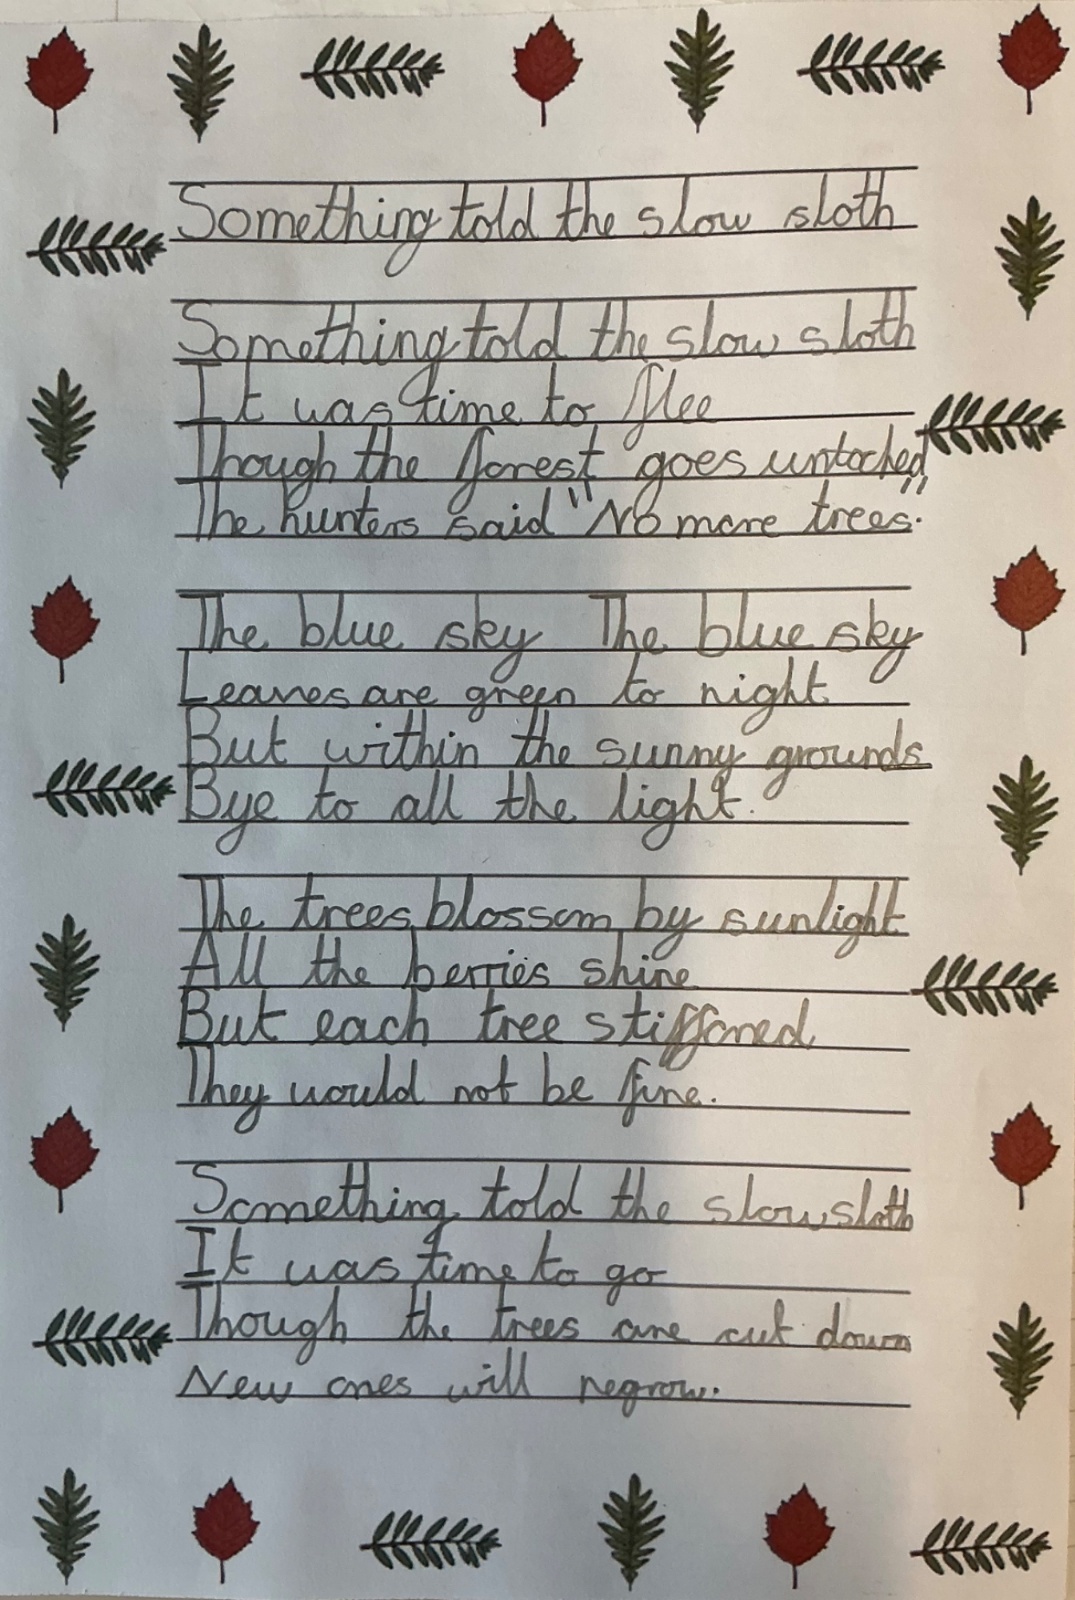 Something told the slow sloth
Something told the slow sloth
It was time to flee
Though the forest goes untoched
The hunters said "No more trees."
The blue sky The blue sky
Leaves are green to night
But within the sunny grounds
Bye to all the light.
The trees blossom by sunlight
All the berries shine
But each tree stiffoned
They would not be fine.
Something told the slow sloth
It was time to go
Though the trees are cut down
New ones will regrow.